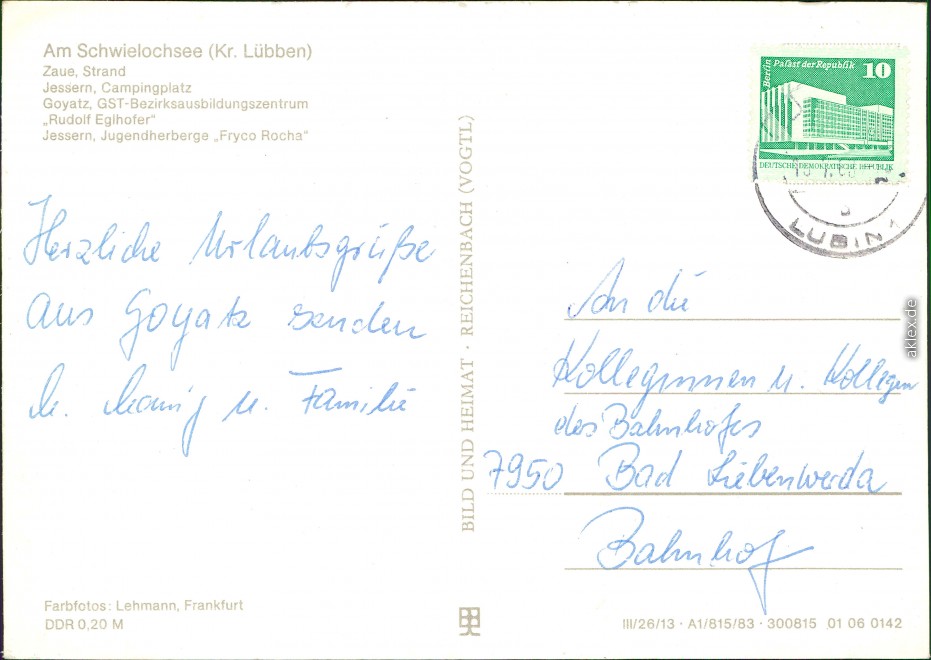 Am Schwielochsee (Kr. Lübben)
Zaue, Strand
Jessern, Campingplatz
Goyatz, GST-Bezirksausbildungszentrum
„Rudolf Eglhofer“
Jessern, Jugendherberge „Fryco Rocha“
Herzliche Urlaubsgrüße
aus Goyatz senden
u. Familie
Farbfotos: Lehmann, Frankfurt
DDR 0,20 M
BILD UND HEIMAT · REICHENBACH (VOGTL)
Berlin Palast der Republik 10
DEUTSCHE DEMOKRATISCHE REPUBLIK
LUBIN 1
An die
Kolleginnen u. Kollegen
des Bahnhofes
7950 Bad Liebenwerda
Bahnhof
III/26/13 · A1/815/83 · 300815 01 06 0142
aklex.de